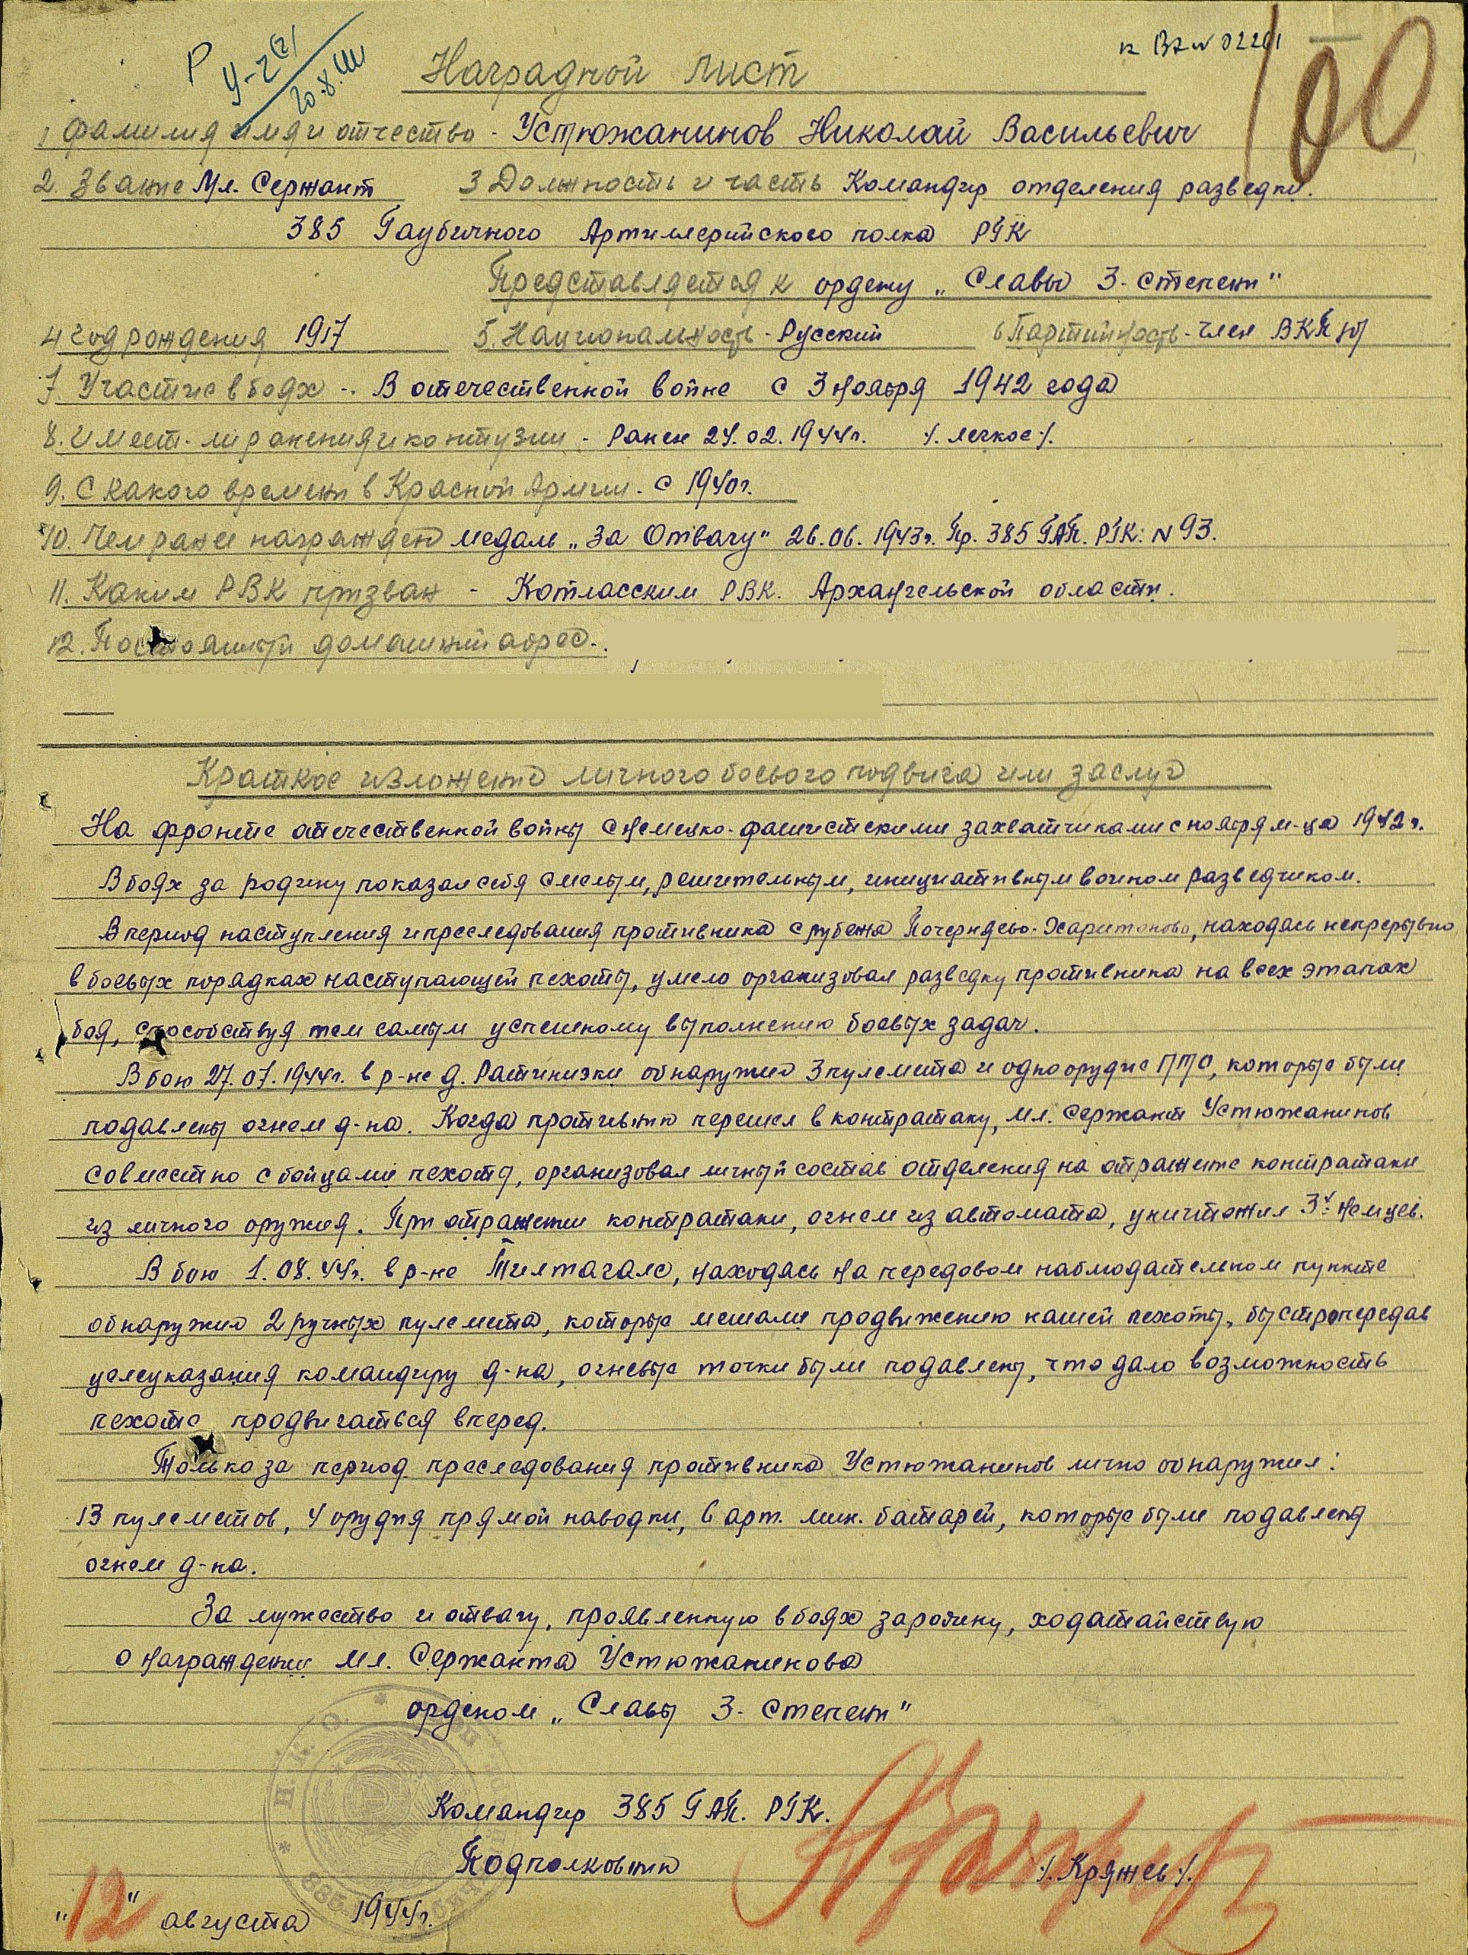 к вх № 02261
100
Р
У-2(2)
20.8.44
Наградной лист
1 Фамилия имя и отчество - Устюжанинов Николай Васильевич
2. Звание Мл. Сержант 3 Должность и часть Командир отделения разведки.
385 Гаубичного Артиллерийского полка РГК
Представляется к ордену „Славы 3-степени"
4 год рождения 1917 5. Национальность - Русский 6 Партийность - член ВКП(б)
7. Участие в боях - В отечественной войне с 3 ноября 1942 года
8. Имеет-ли ранения и контузии - Ранен 24.02.1944г. /. легкое /.
9. С какого времени в Красной Армии - с 1940г.
10. Чем ранее награжден медаль „За Отвагу" 26.06.1943г. Пр. 385 ГАП. РГК: N 93.
11. Каким РВК призван - Котласским РВК. Архангельской области.
12. Постоянный домашний адрес.
Краткое изложение личного боевого подвига или заслуг
На фронте отечественной войны с немецко-фашистскими захватчиками с ноября м-ца 1942 г.
В боях за родину показал себя смелым, решительным, инициативным воином разведчиком.
В период наступления и преследования противника с рубежа Почерняево-Харитоново, находясь непрерывно
в боевых порядках наступающей пехоты, умело организовал разведку противника на всех этапах
боя, способствуя тем самым успешному выполнению боевых задач.
В бою 27.07.1944г. в р-не д. Ратиники обнаружил 3 пулемета и одно орудие ПТО, которые были
подавлены огнем д-на. Когда противник перешел в контратаку, мл. сержант Устюжанинов
совместно с бойцами пехоты, организовал личный состав отделения на отражение контратаки
из личного оружия. При отражении контратаки, огнем из автомата, уничтожил 3х немцев.
В бою 1.08.44г. в р-не Тилтагалс, находясь на передовом наблюдательном пункте
обнаружил 2 ручных пулемета, которые мешали продвижению нашей пехоты, быстро передав
целеуказания командиру д-на, огневые точки были подавлены, что дало возможность
пехоте продвигаться вперед.
Только за период преследования противника Устюжанинов лично обнаружил:
13 пулеметов, 4 орудия прямой наводки, 6 арт. мин. батарей, которые были подавлены
огнем д-на.
За мужество и отвагу, проявленную в боях за родину, ходатайствую
о награждении мл. Сержанта Устюжанинова
орденом „Славы 3-степени"
Командир 385 ГАП. РГК.
Подполковник /. Кряжев /.
„12" августа 1944г.